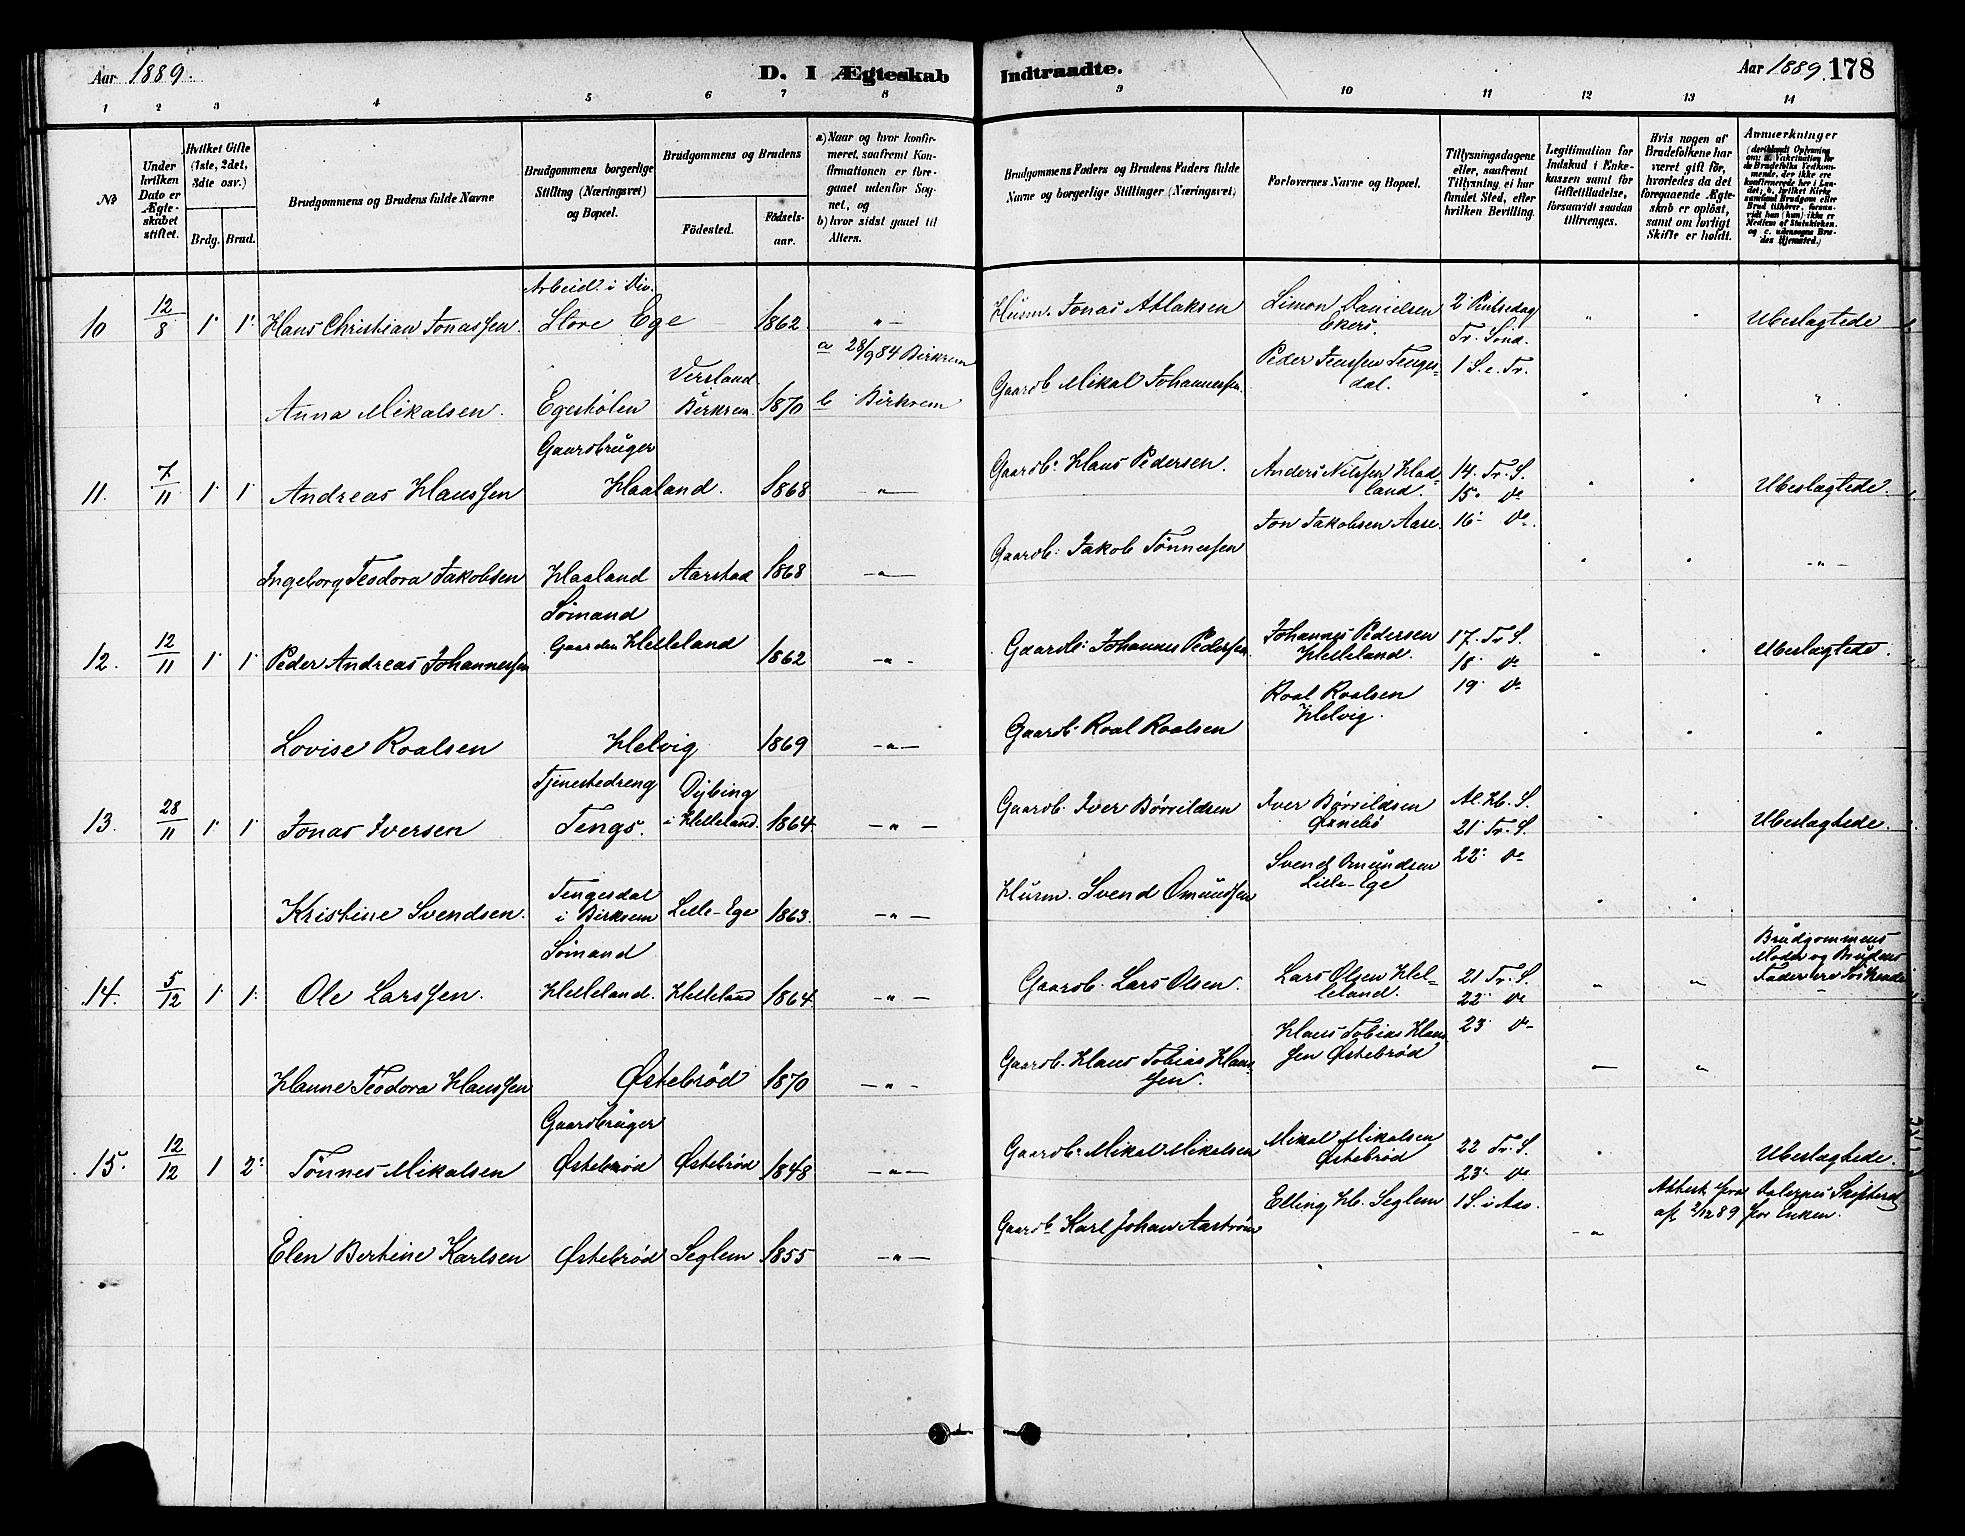 Aar 1889.
D. I Ægteskab
Indtraadte.
Aar 1889. 178
1 2 3 4 5 6 7 8 9 10 11 12 13 14
No
Under hvilken Dato er Ægteskabet stiftet.
Hvilket Gifte (1ste, 2det, 3die osv.)
Brdg. Brud.
Brudgommens og Brudens fulde Navne
Brudgommens borgerlige Stilling (Næringsvei) og Bopæl.
Brudgommens og Brudens
Födested.
Födselsaar.
a) Naar og hvor konfirmeret, saafremt Konfirmationen er foregaaet udenfor Sognet, og
b) hvor sidst gaaet til Alters.
Brudgommens Faders og Brudens Faders fulde Navne og borgerlige Stillinger (Næringsvei)
Forlovernes Navne og Bopæl.
Tillysningsdagene eller, saafremt Tillysning ei har fundet Sted, efter hvilken Bevilling.
Legitimation for Indskud i Enkekassen samt for Giftetilladelse, forsaavidt saadan tiltrænges.
Hvis nogen af Brudefolkene har været gift för, hvorledes da det foregaaende Ægteskab er oplöst, samt om lovligt Skifte er holdt.
Anmærkninger
10 12/8 1. 1. Hans Christian Jonassen. Arbeid. i Div. Store Ege 1862. " Husm. Jonas Atlaksen Simon Danielsen Ekers. 2 Pintsedag Tr. Sönd. " " Ubeslægtede
Anna Mikalsen. Egestølen Versland Birkrem. 1870 a 28/9 84 Birkrem b Birkrem Gaardb Mikal Johannessen. Peder Jenssen Tengesdal. 1 S. e. Tr. " " "
11. 7/11 1. 1. Andreas Hanssen Gaardbruger Haaland. 1868 " Gaardb. Hans Pedersen. Anders Nilssen Hadland. 14. Tr. S. 15. do " " Ubeslægtede.
Ingeborg Teodora Jakobsen Haaland Aarstad 1868 " Gaardb: Jakob Tönnessen Jon Jakobsen Aase. 16. do " " "
12. 12/11 1. 1. Peder Andreas Johannessen Sömand Gaarden Helleland 1862 " Gaardb: Johannes Pedersen Johannes Pedersen Helleland. 17. Tr S. 18. do " " Ubeslægtede.
Lovise Roalsen Helvig 1869 " Gaardb. Roal Roalsen Roal Roalsen Helvig. 19. do " " "
13. 28/11 1. 1. Jonas Iversen Tjenestedreng Tengs. Dybing i Helleland. 1864 " Gaardb. Iver Børrildsen Iver Børrildsen Al. H. S. 21 Tr. S. " " Ubeslægtede.
Kristine Svendsen. Tengesdal i Birkrem Lille-Ege 1863. " Husm. Svend Omundsen Svend Omundsen Lille-Ege 22. do " "
14. 5/12 1. 1. Ole Larssen. Sömand Helleland. Helleland 1864 " Gaardb. Lars Olsen. Lars Olsen Helleland. 21 Tr. S. 22. do " " Brudgommens Moder og Brudens Fader ere Söskende
Hanne Teodora Hanssen Østebrød 1870 " Gaardb. Hans Tobias Hanssen. Hans Tobias Hanssen Østebrød 23. do " "
15. 12/12 1 2. Tönnes Mikalsen Gaardbruger Østebrød Østebrød 1848 " Gaardb. Mikal Mikalsen Mikal Mikalsen Østebrød 22 Tr. S. 23. do " Ubeslægtede.
Elen Bertine Karlsen Østebrød Seglem 1855 " Gaardb Karl Johan Aarström Elling H. Seglem 1 S. i Adv. " Attest fra Dalernes Skifteret af 2/12 89 for Enken.